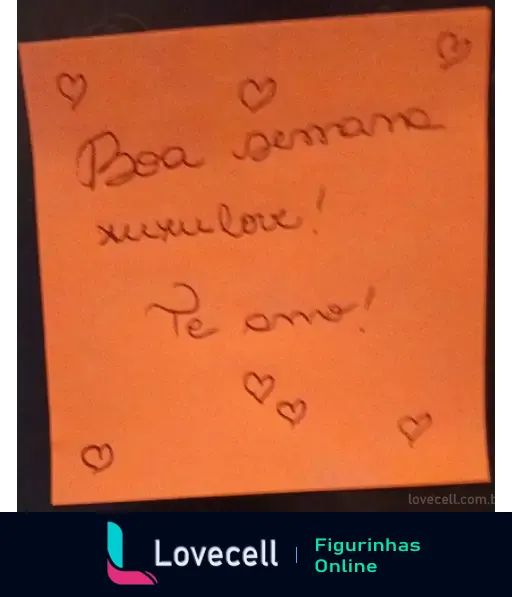 Boa semana
xuxulove!
Te amo!
lovecell.com.b
Lovecell
Figurinhas
Online